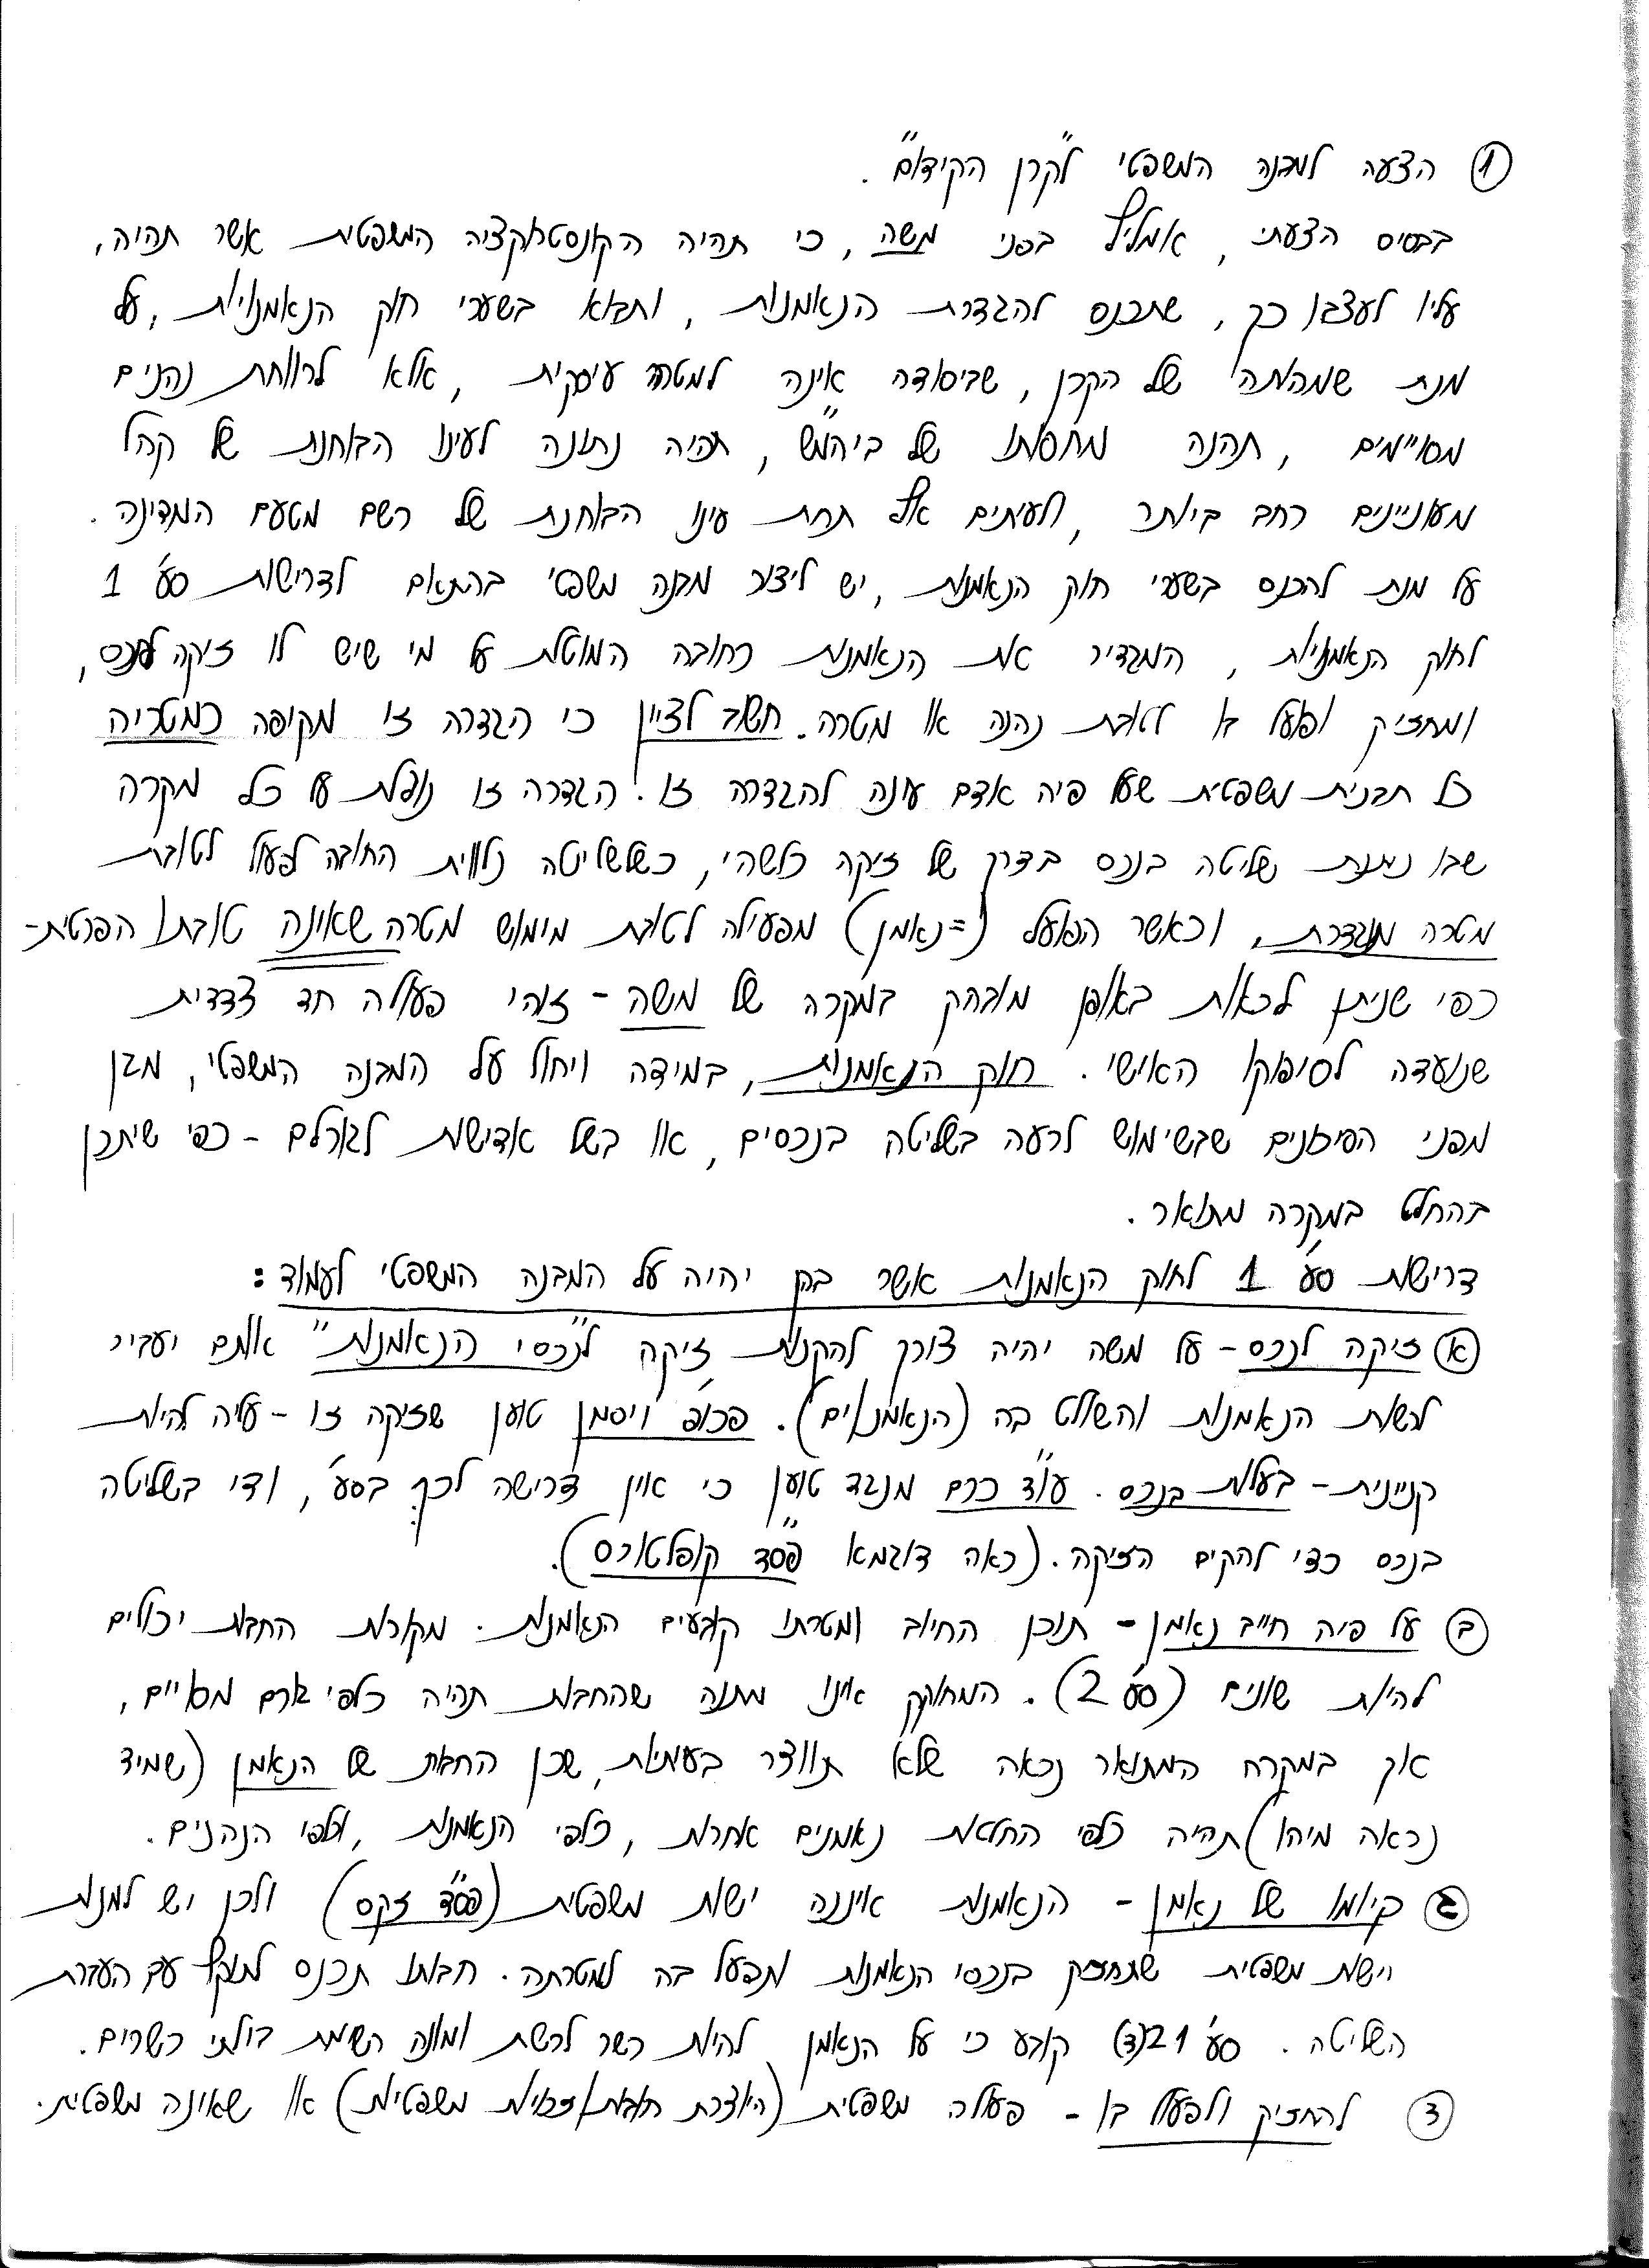 ① הצעה למבנה המשפטי ל"קרן הקידום".
בבסיס הצעתי, אמליץ בפני משה, כי תהיה הקונסטרוקציה המשפטית אשר תהיה,
עליו לעצבו כך, שתכנס להגדרת הנאמנות, ותבוא בשערי חוק הנאמנויות, על
מנת שמהותה של הקרן, שביסודה אינה למטרה עיסקית, אלא לרווחת נהנים
מסויימים, תהנה מחסותו של ביהמ"ש, תהיה נתונה לעינו הבוחנת של קהל
מעוניינים רחב ביותר, ולעיתים אף תחת עינו הבוחנת של רשם מטעם המדינה.
על מנת להכנס בשערי חוק הנאמנות, יש ליצור מבנה משפטי בהתאם לדרישות סע' 1
לחוק הנאמנויות, המגדיר את הנאמנות כחובה המוטלת על מי שיש לו זיקה לנכס,
ומחזיק ופועל בו לטובת נהנה או מטרה. חשוב לציין כי הגדרה זו מקיפה כמטריה
כל תבנית משפטית שעל פיה אדם עונה להגדרה זו. הגדרה זו נופלת על כל מקרה
שבו ניתנת שליטה בנכס בדרך של זיקה כלשהי, כשלשליטה נלווית החובה לפעול לטובת
מטרה מוגדרת, וכאשר הפועל (=נאמן) מפעילה לטובת מימוש מטרה שאינה טובתו הפרטית-
כפי שניתן לראות באופן מובהק במקרה של משה - זוהי פעולה חד צדדית
שנועדה לסיפוקו האישי. חוק הנאמנות, במידה ויחול על המבנה המשפטי, מגן
מפני הסיכונים שבשימוש לרעה בשליטה בנכסים, או בשל אדישות לגורלם - כפי שיתכן
בהחלט במקרה מתואר.
דרישות סע' 1 לחוק הנאמנות אשר בהן יהיה על המבנה המשפטי לעמוד:
Ⓐ זיקה לנכס - על משה יהיה צורך להקנות זיקה ל"נכסי הנאמנות" אותם יעביר
לרשות הנאמנות והשולט בה (הנאמן/ים). פרופ' ויסמן טוען שזיקה זו - עליה להיות
קניינית - בעלות בנכס. עו"ד כרם מנגד טוען כי אין דרישה לכך בסע', ודי בשליטה
בנכס כדי להקים הזיקה. (ראה דוגמא פס"ד קופלטורס).
ⓑ על פיה חייב נאמן - תוכן החיוב ומטרתו קובעים הנאמנות. מקורות החבות יכולים
להיות שונים (סע' 2). המחוקק אינו מתנה שהחבות תהיה כלפי גורם מסויים,
אך במקרה המתואר נראה שלא תווצר בעייתיות, שכן החבות של הנאמן (שמיד
נראה מיהו) תהיה כלפי החלטות נאמנים אחרות, כלפי הנאמנות, וכלפי הנהנים.
ג קיומו של נאמן - הנאמנות איננה ישות משפטית (פס"ד זקס) ולכן יש למנות
ישות משפטית שתחזיק בנכסי הנאמנות ותפעל בה למטרתה. חבותו תכנס לתוקף עם העברת
השליטה. סע' 21(ד) קובע כי על הנאמן להיות כשר לרשת ומונה רשימת בלתי כשרים.
ד להחזיק ולפעול בו - פעולה משפטית (היוצרת חובות/זכויות משפטיות) או שאינה משפטית.